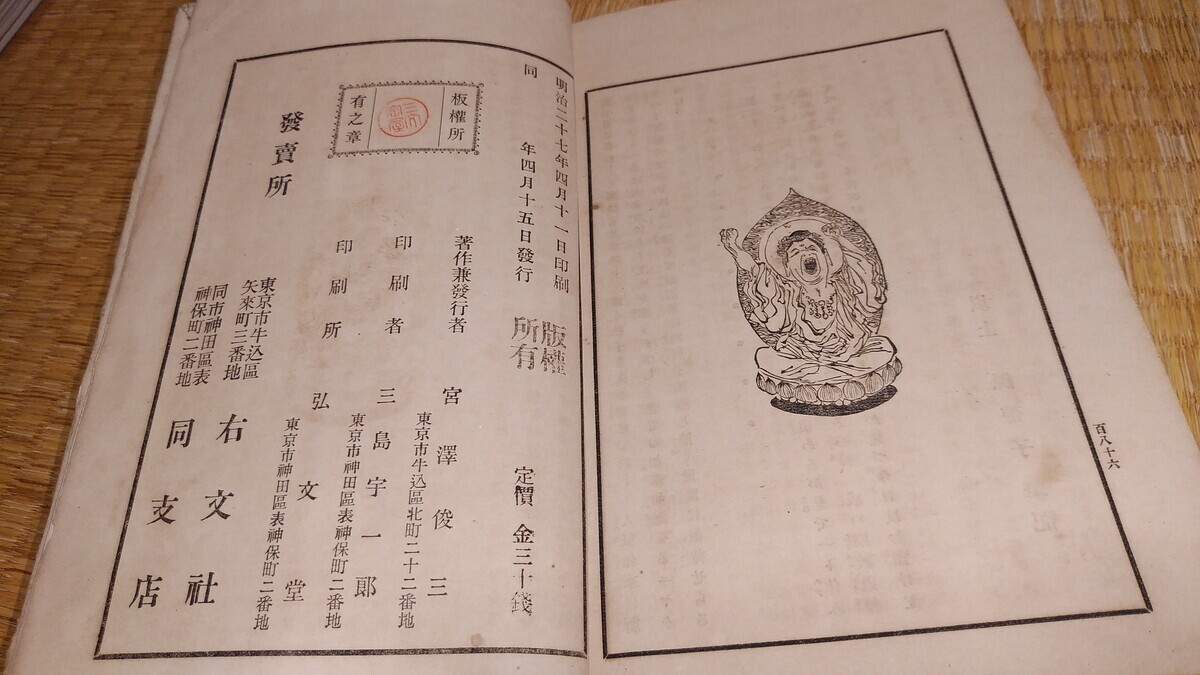 百八十六
明治二十七年四月十一日印刷
同年四月十五日發行
版權
所有
定價 金三十錢
板權所
有之章
著作兼發行者 宮澤俊三
東京市牛込區北町二十二番地
印刷者 三島宇一郎
東京市神田區表神保町二番地
印刷所 弘文堂
東京市神田區表神保町二番地
發賣所
東京市牛込區
矢來町三番地
右文社
同市神田區表
神保町二番地
同支店